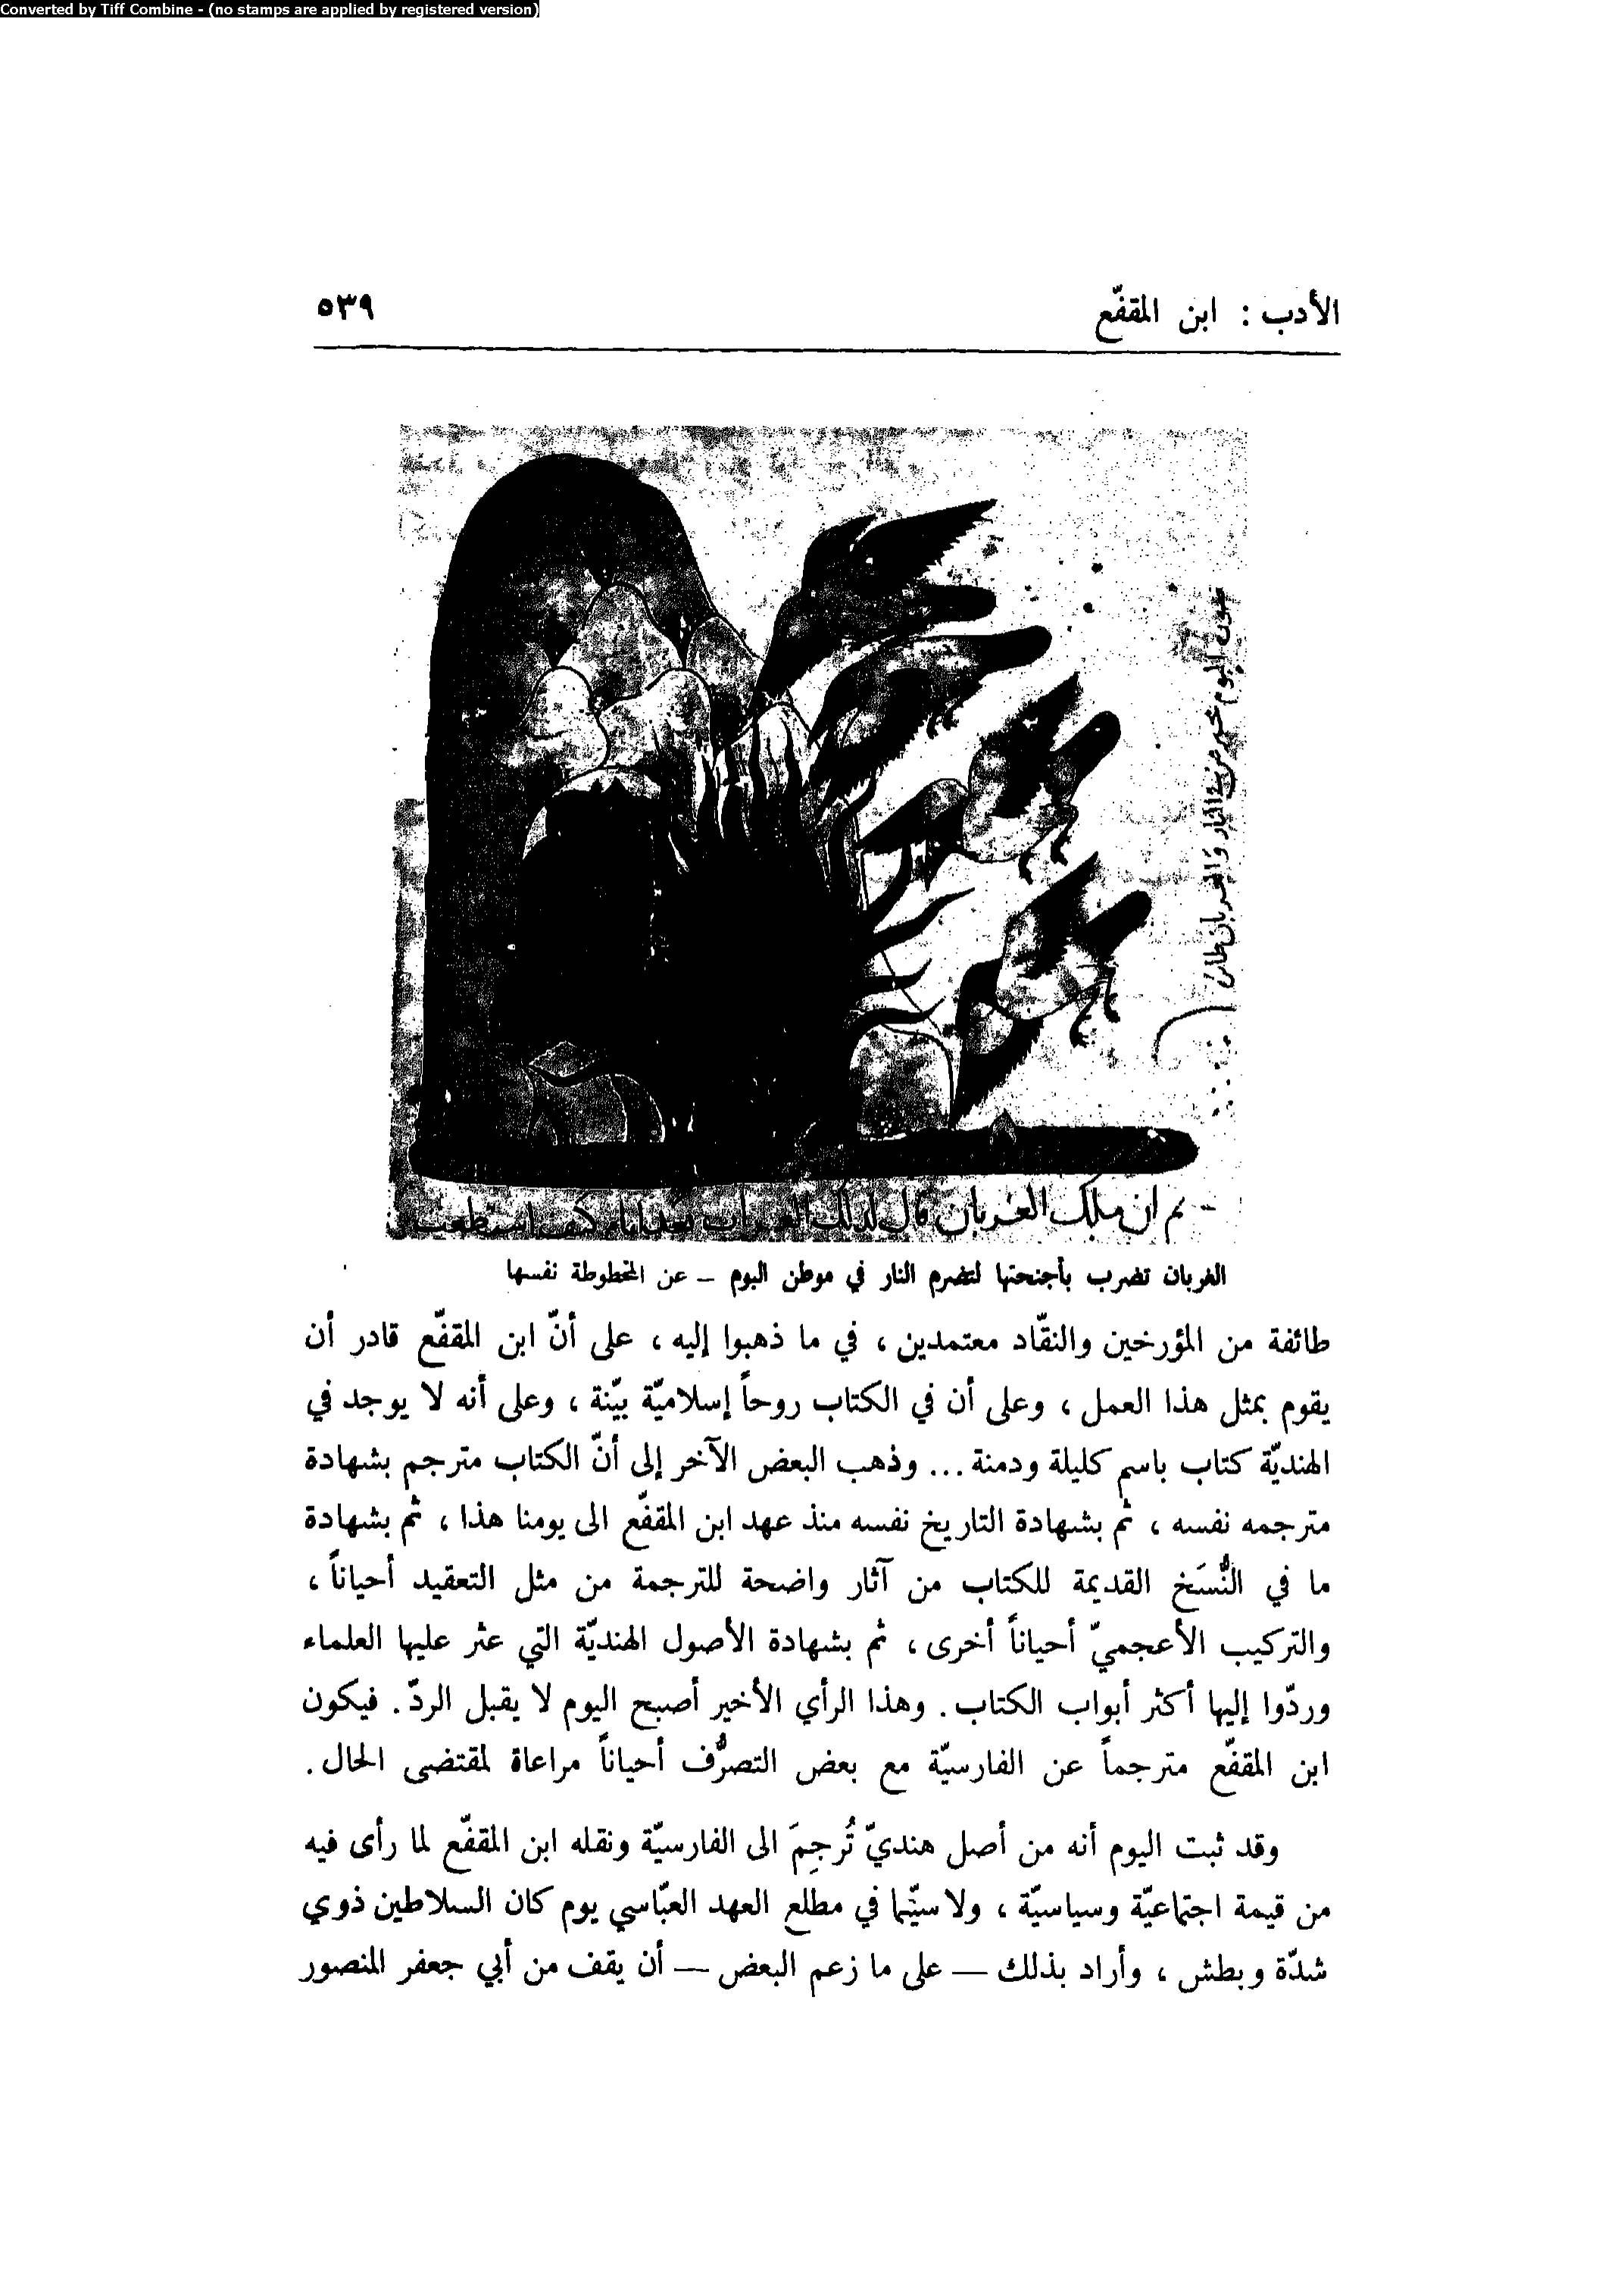 Converted by Tiff Combine - (no stamps are applied by registered version)
الأدب : ابن المقفّع ٥٣٩
ثم ان ملك الغربان قال لذلك الغراب بعد
الغربان تضرب بأجنحتها لتضرم النار في موطن البوم – عن المخطوطة نفسها
طائفة من المؤرخين والنقّاد معتمدين ، في ما ذهبوا إليه ، على أنّ ابن المقفّع قادر أن
يقوم بمثل هذا العمل ، وعلى أن في الكتاب روحاً إسلاميّة بيّنة ، وعلى أنه لا يوجد في
الهنديّة كتاب باسم كليلة ودمنة ... وذهب البعض الآخر إلى أنّ الكتاب مترجم بشهادة
مترجمه نفسه ، ثم بشهادة التاريخ نفسه منذ عهد ابن المقفّع الى يومنا هذا ، ثم بشهادة
ما في النُّسَخ القديمة للكتاب من آثار واضحة للترجمة من مثل التعقيد أحياناً ،
والتركيب الأعجميّ أحياناً أخرى ، ثم بشهادة الأصول الهنديّة التي عثر عليها العلماء
وردّوا إليها أكثر أبواب الكتاب . وهذا الرأي الأخير أصبح اليوم لا يقبل الردّ . فيكون
ابن المقفّع مترجماً عن الفارسيّة مع بعض التصرُّف أحياناً مراعاة لمقتضى الحال .
وقد ثبت اليوم أنه من أصل هنديّ تُرجِمَ الى الفارسيّة ونقله ابن المقفّع لما رأى فيه
من قيمة اجتماعيّة وسياسيّة ، ولا سيّما في مطلع العهد العبّاسي يوم كان السلاطين ذوي
شدّة وبطش ، وأراد بذلك — على ما زعم البعض — أن يقف من أبي جعفر المنصور